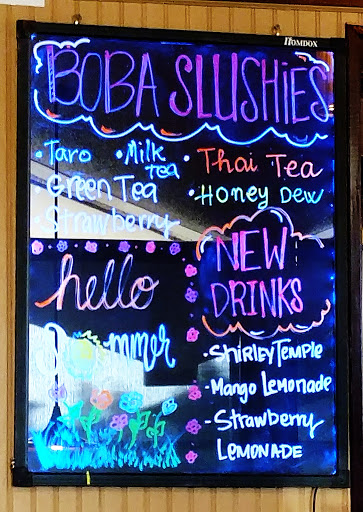 HOMDOX
BOBA SLUSHiES
• Taro • Milk Tea • Thai Tea
• Green Tea • Honey Dew
• Strawberry
hello
Summer
NEW
DRINKS
• SHIRLEY TEMPLE
• Mango Lemonade
• Strawberry
LEMONADE